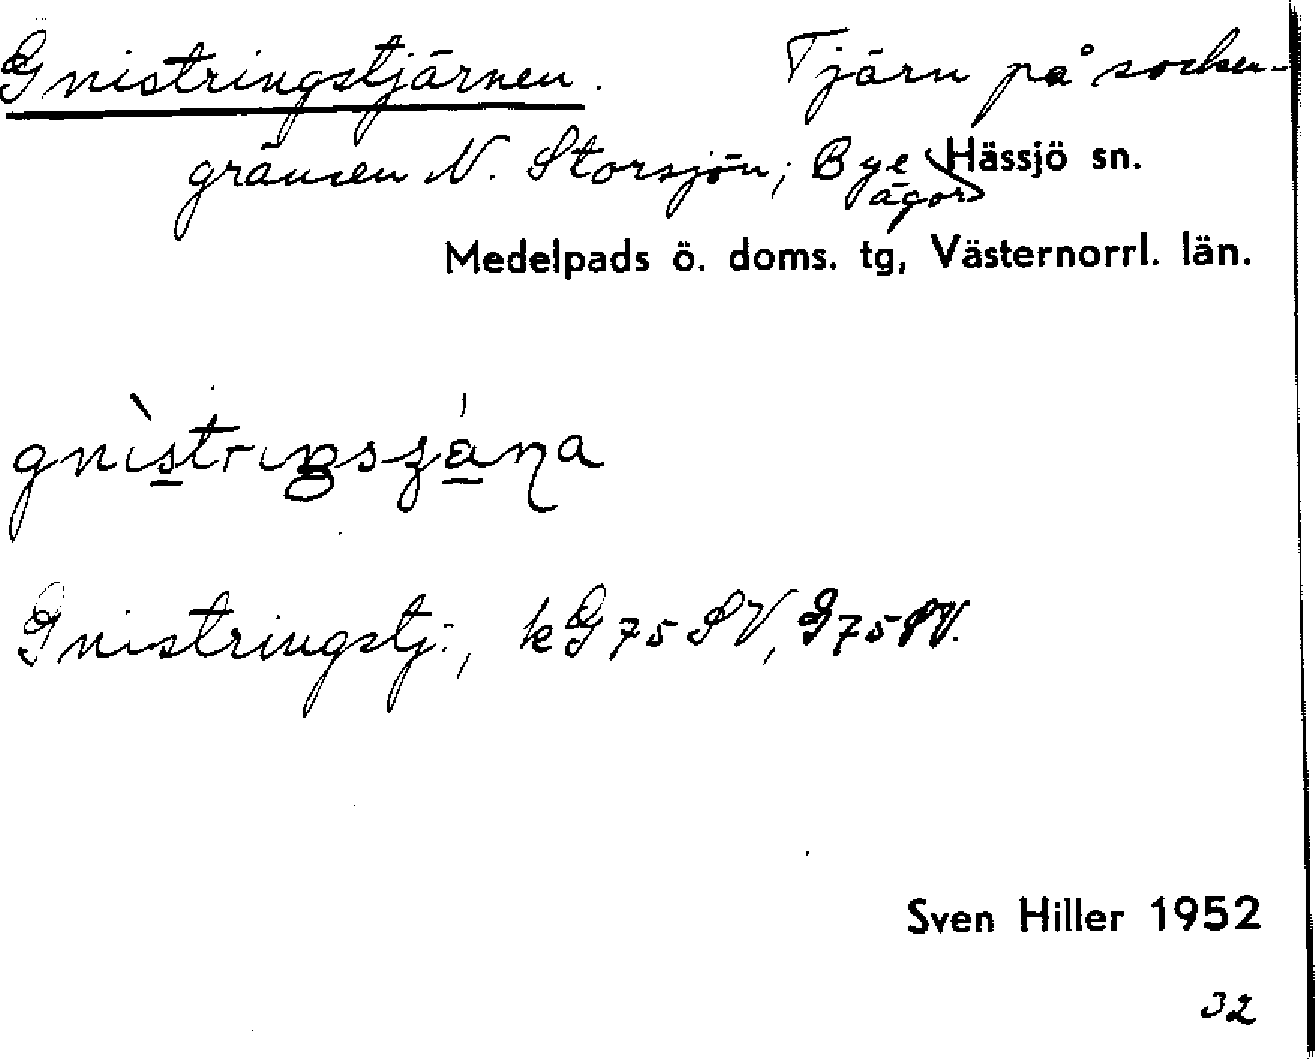 Gnistringstjärnen. Tjärn på socken-
gränsen N. Storsjön; Bye ägor Hässjö sn.
Medelpads ö. doms. tg, Västernorrl. län.
Gnistringstj:, kG75SV, G75SV.
Sven Hiller 1952
32